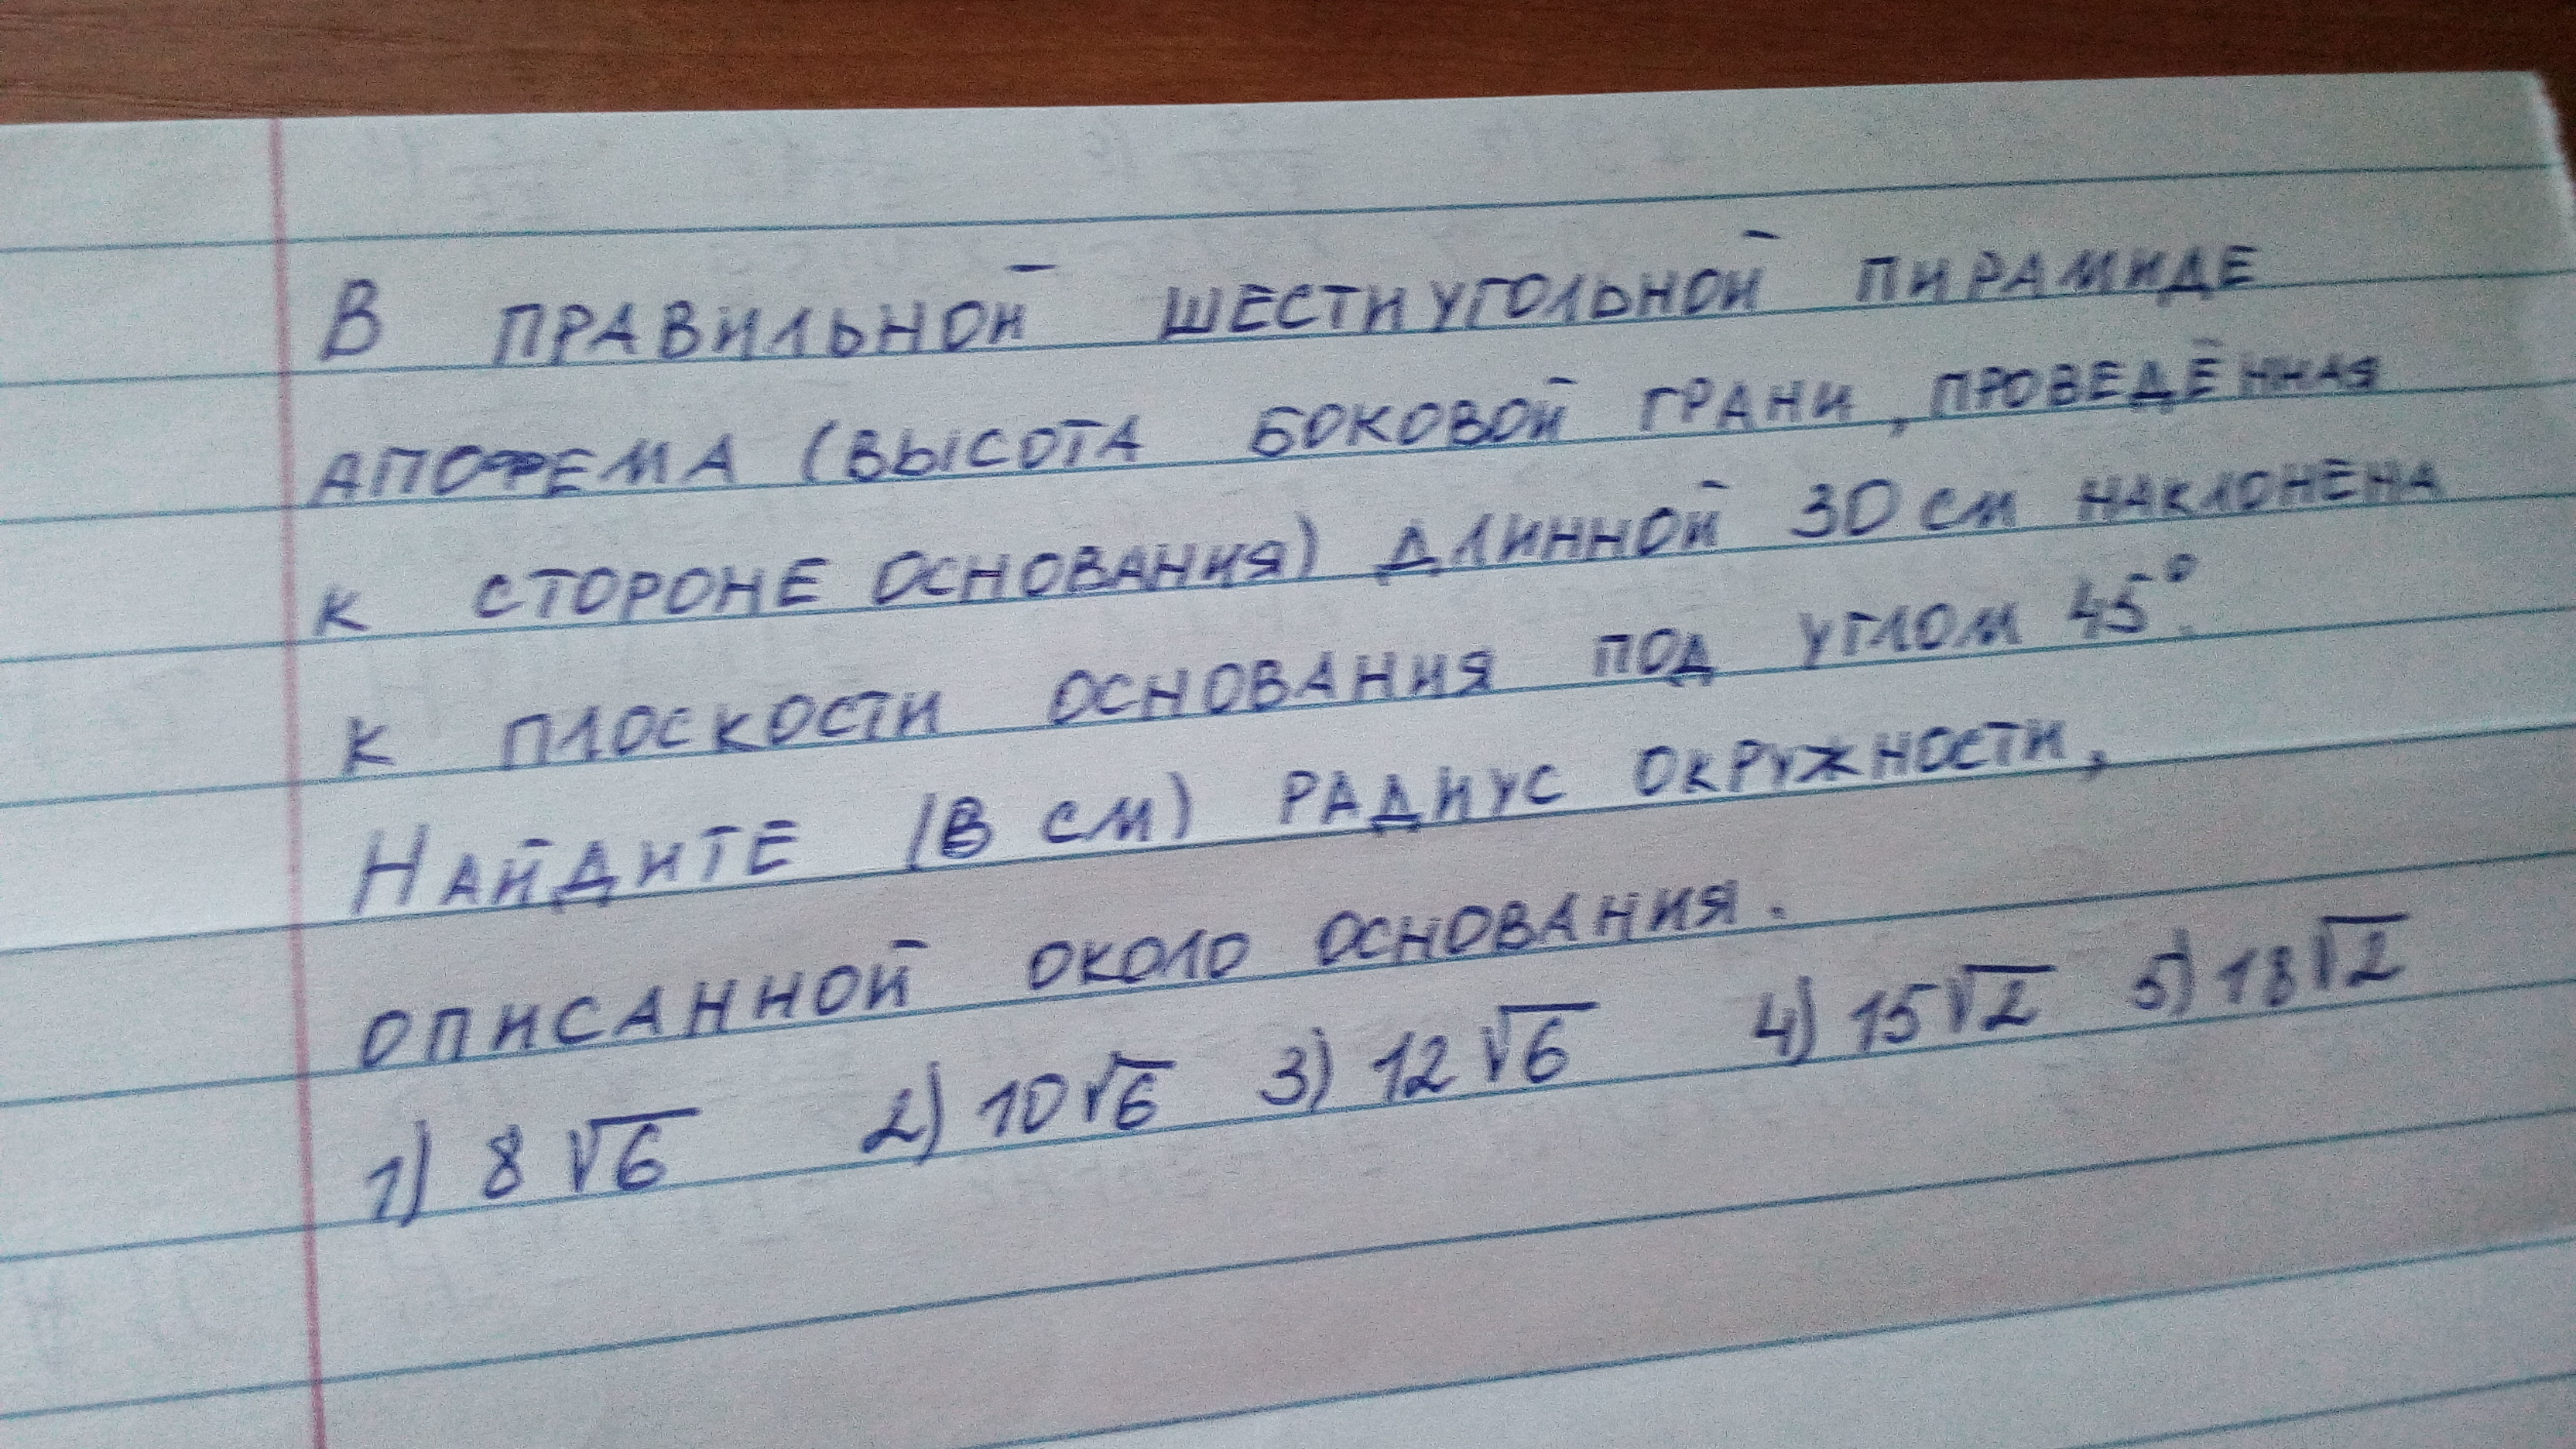 В ПРАВИЛЬНОЙ ШЕСТИУГОЛЬНОЙ ПИРАМИДЕ
АПОФЕМА (ВЫСОТА БОКОВОЙ ГРАНИ, ПРОВЕДЁННАЯ
К СТОРОНЕ ОСНОВАНИЯ) ДЛИННОЙ 30 СМ НАКЛОНЕНА
К ПЛОСКОСТИ ОСНОВАНИЯ ПОД УГЛОМ 45°.
НАЙДИТЕ (В СМ) РАДИУС ОКРУЖНОСТИ,
ОПИСАННОЙ ОКОЛО ОСНОВАНИЯ.
1) 8√6 2) 10√6 3) 12√6 4) 15√2 5) 18√2